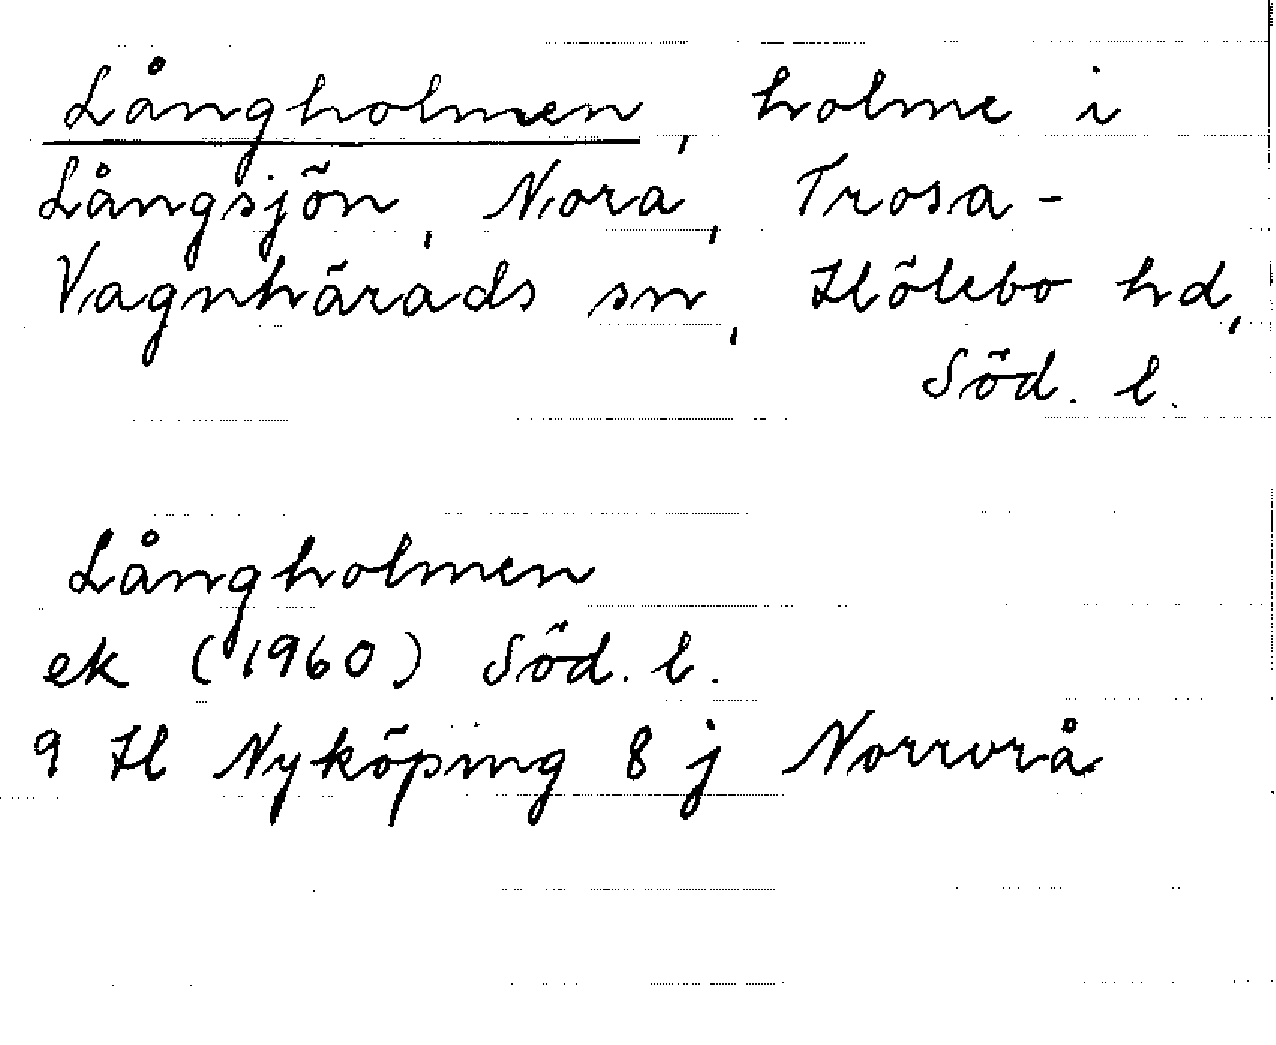 Långholmen, holme i
Långsjön, Nora, Trosa-
Vagnhärads sn, Hölebo hd,
Söd. l.
Långholmen
ek (1960) Söd. l.
9 H Nyköping 8 j Norrvrå